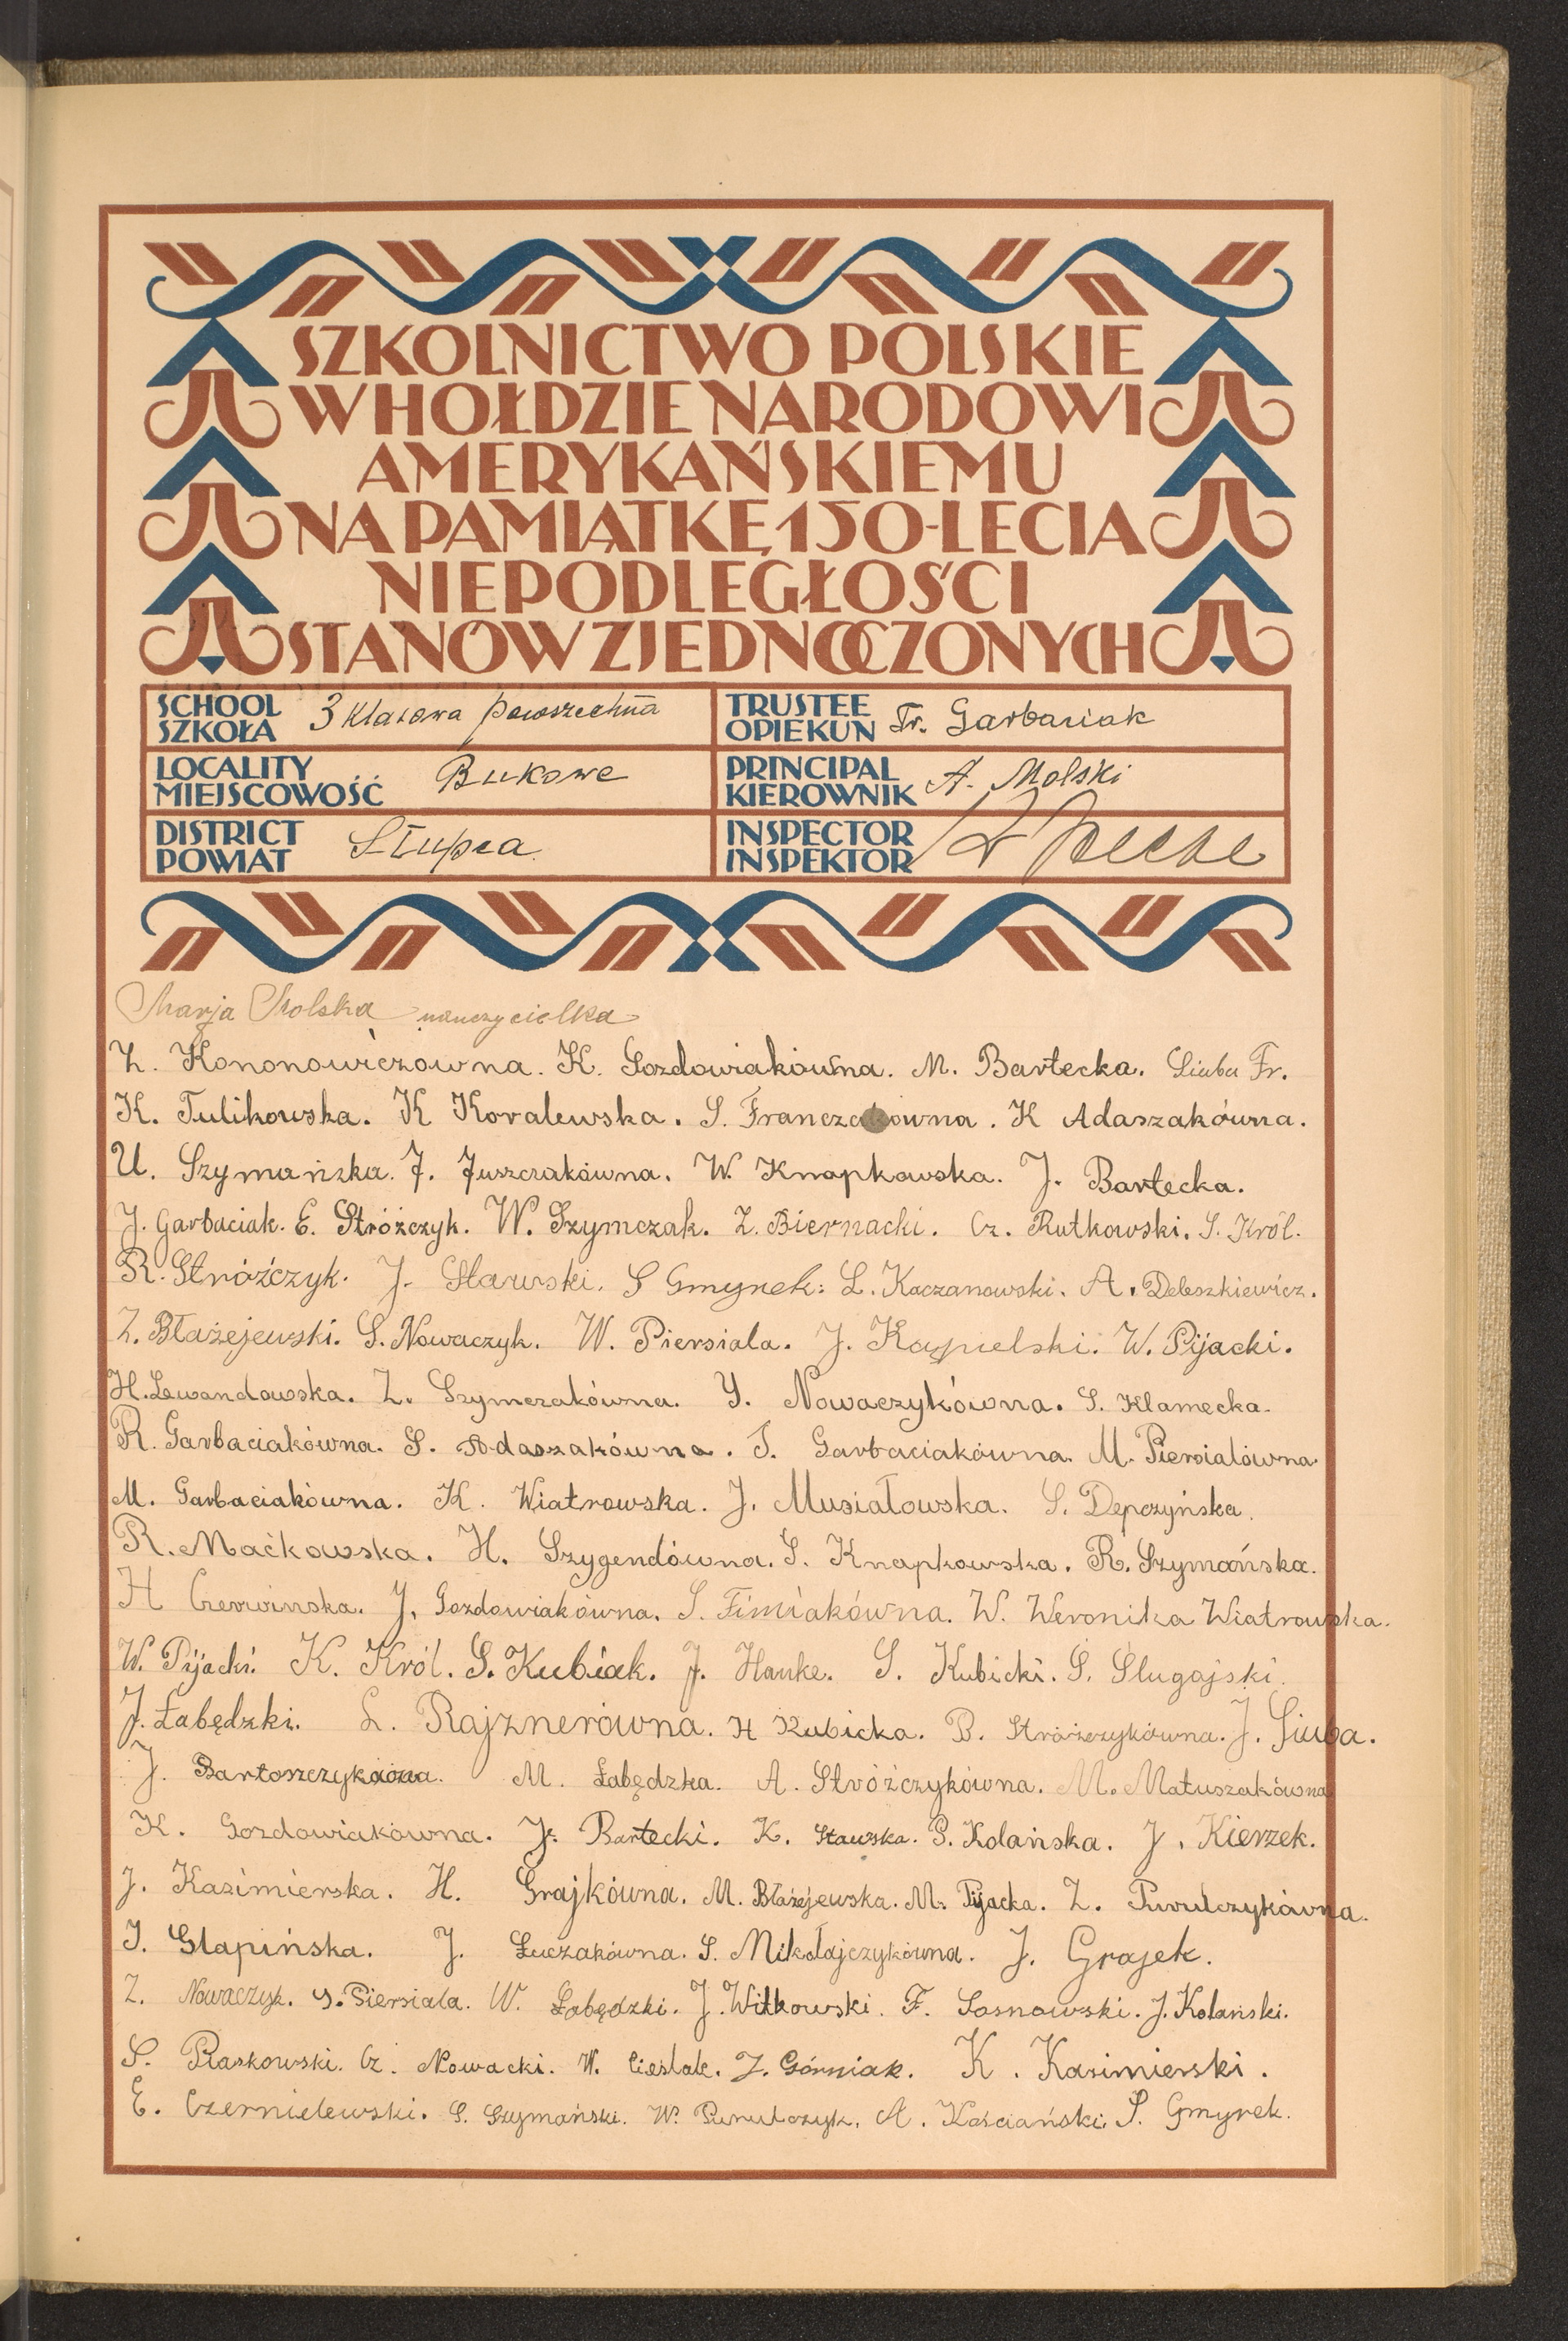 SZKOLNICTWO POLSKIE
W HOŁDZIE NARODOWI
AMERYKAŃSKIEMU
NA PAMIĄTKĘ 150-LECIA
NIEPODLEGŁOŚCI
STANÓW ZJEDNOCZONYCH
SCHOOL
SZKOŁA 3 klasowa powszechna
TRUSTEE
OPIEKUN Fr. Garbaciak
LOCALITY
MIEJSCOWOŚĆ Bukowe
PRINCIPAL
KIEROWNIK A. Molski
DISTRICT
POWIAT Słupca
INSPECTOR
INSPEKTOR
Marja Molska nauczycielka
Z. Kononowiczówna. K. Gozdowiakówna. M. Bartecka. Siuba Fr.
K. Tulikowska. K Kovalewska. S. Franczakówna. K Adaszakówna.
U. Szymańska. J. Juszczakówna. W. Knapkowska. J. Bartecka.
J. Garbaciak. E. Stróżczyk. W. Szymczak. Z. Biernacki. Cz. Rutkowski. S. Król.
R. Stróżczyk. J. Sławski. S Gmyrek. L. Kaczanowski. A. Deleszkiewicz.
Z. Błażejewski. S. Nowaczyk. W. Piersiala. J. Kąpielski. W. Pijacki.
H. Lewandowska. Z. Szymczakówna. Y. Nowaczykówna. S. Klamecka.
R. Garbaciakówna. S. Adaszakówna. J. Garbaciakówna. M. Piersialówna.
M. Garbaciakówna. K. Wiatrowska. J. Musiałowska. S. Depczyńska.
R. Maćkowska. H. Szygendówna. S. Knapkowska. R. Szymańska.
H Czerwińska. J. Gozdowiakówna. S. Fimiakówna. W. Weronika Wiatrowska.
W. Pijacki. K. Król. S. Kubiak. J. Hauke. S. Kubicki. S. Slugajski.
J. Łabędzki. L. Rajznerówna. H Kubicka. B. Stróżczykówna. J. Siuba.
J. Bartoszczykówna. M. Łabędzka. A. Stróżczykówna. M. Matuszakówna
K. Gozdowiakówna. J. Bartecki. K. Sławska. S. Kolańska. J. Kierzek.
J. Kazimierska. H. Grajkówna. M. Błażejewska. M. Pijacka. Z. Purulczykówna.
J. Glapińska. J. Łuczakówna. S. Mikołajczykówna. J. Grajek.
Z. Nowaczyk. S. Piersiala. W. Łabędzki. J. Witkowski. F. Sosnowski. J. Kolański.
S. Piaskowski. Cz. Nowacki. W. Cieślak. J. Górniak. K. Kazimierski.
E. Czernielewski. S. Szymański. W. Purulczyk. A. Kościański. S. Gmyrek.